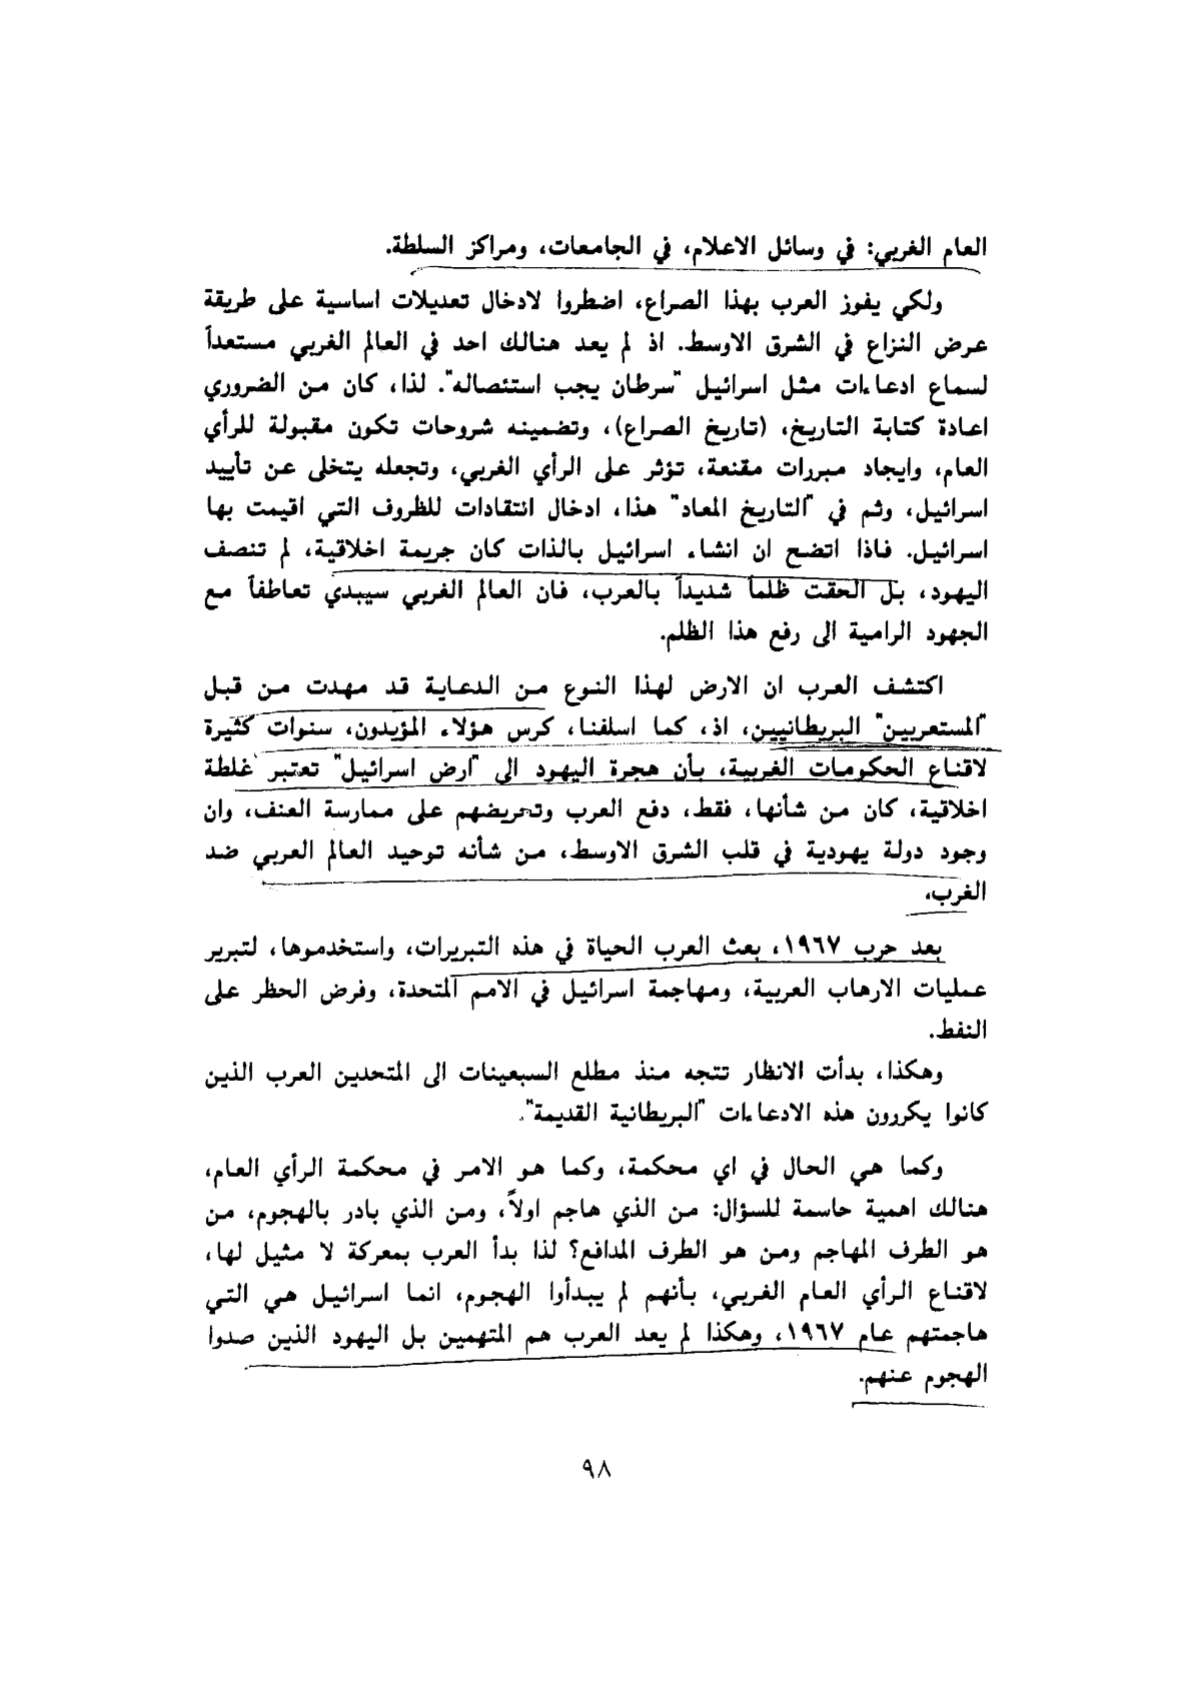 العام الغربي: في وسائل الاعلام، في الجامعات، ومراكز السلطة.
ولكي يفوز العرب بهذا الصراع، اضطروا لادخال تعديلات اساسية على طريقة
عرض النزاع في الشرق الاوسط. اذ لم يعد هنالك احد في العالم الغربي مستعداً
لسماع ادعاءات مثل اسرائيل "سرطان يجب استئصاله". لذا، كان من الضروري
اعادة كتابة التاريخ، (تاريخ الصراع)، وتضمينه شروحات تكون مقبولة للرأي
العام، وايجاد مبررات مقنعة، تؤثر على الرأي الغربي، وتجعله يتخلى عن تأييد
اسرائيل، وثم في "التاريخ المعاد" هذا، ادخال انتقادات للظروف التي اقيمت بها
اسرائيل. فاذا اتضح ان انشاء اسرائيل بالذات كان جريمة اخلاقية، لم تنصف
اليهود، بل الحقت ظلماً شديداً بالعرب، فان العالم الغربي سيبدي تعاطفاً مع
الجهود الرامية الى رفع هذا الظلم.
اكتشف العرب ان الارض لهذا النوع من الدعاية قد مهدت من قبل
"المستعربين" البريطانيين، اذ، كما اسلفنا، كرس هؤلاء المؤيدون، سنوات كثيرة
لاقناع الحكومات الغربية، بأن هجرة اليهود الى "ارض اسرائيل" تعتبر غلطة
اخلاقية، كان من شأنها، فقط، دفع العرب وتحريضهم على ممارسة العنف، وان
وجود دولة يهودية في قلب الشرق الاوسط، من شأنه توحيد العالم العربي ضد
الغرب.
بعد حرب ١٩٦٧، بعث العرب الحياة في هذه التبريرات، واستخدموها، لتبرير
عمليات الارهاب العربية، ومهاجمة اسرائيل في الامم المتحدة، وفرض الحظر على
النفط.
وهكذا، بدأت الانظار تتجه منذ مطلع السبعينات الى المتحدين العرب الذين
كانوا يكررون هذه الادعاءات "البريطانية القديمة".
وكما هي الحال في اي محكمة، وكما هو الامر في محكمة الرأي العام،
هنالك اهمية حاسمة للسؤال: من الذي هاجم اولاً، ومن الذي بادر بالهجوم، من
هو الطرف المهاجم ومن هو الطرف المدافع؟ لذا بدأ العرب بمعركة لا مثيل لها،
لاقناع الرأي العام الغربي، بأنهم لم يبدأوا الهجوم، انما اسرائيل هي التي
هاجمتهم عام ١٩٦٧، وهكذا لم يعد العرب هم المتهمين بل اليهود الذين صدوا
الهجوم عنهم.
٩٨